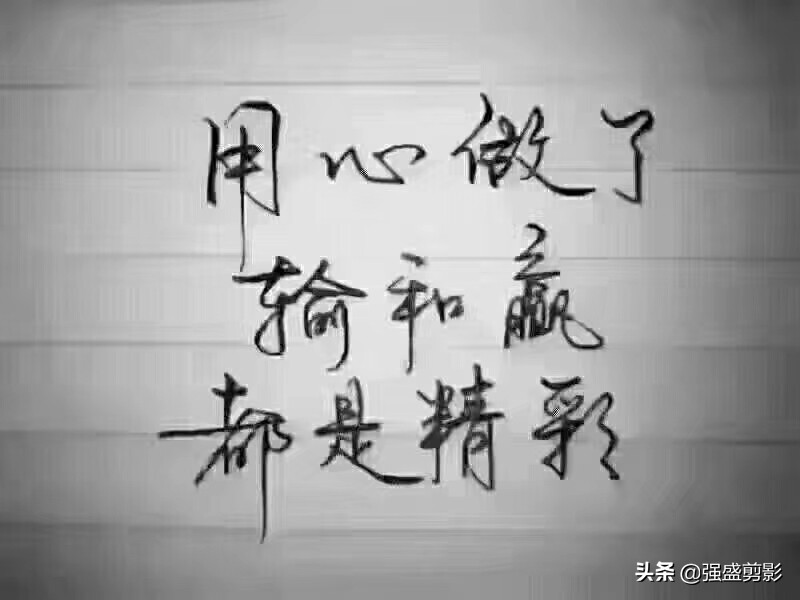 用心做了
输和赢
都是精彩
头条 @强盛剪影